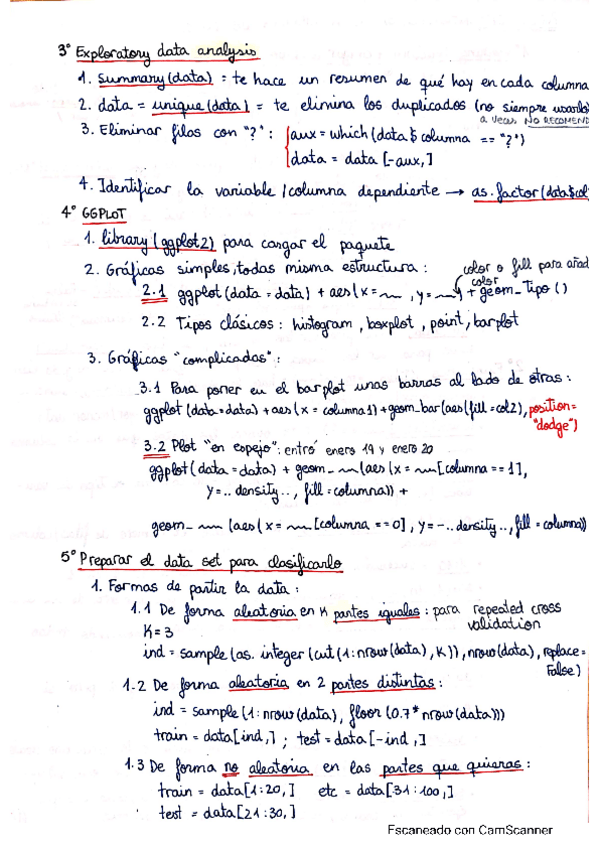 3º Exploratory data analysis
1. summary(data) = te hace un resumen de qué hay en cada columna
2. data = unique(data) = te elimina los duplicados (no siempre usarlo)
a veces NO RECOMEND
3. Eliminar filas con "?" : {aux = which(data$columna == "?")
data = data [-aux,]
4. Identificar la variable / columna dependiente → as.factor(data$col
4º GGPLOT
1. library(ggplot2) para cargar el paquete
2. Gráficas simples, todas misma estructura :
color o fill para añad
color
2.1 ggplot(data = data) + aes(x = ~, y = ~) + geom_Tipo ()
2.2 Tipos clásicos : histogram, boxplot, point, barplot
3. Gráficas "complicadas" :
3.1 Para poner en el barplot unas barras al lado de otras :
ggplot (data = data) + aes (x = columna1) + geom_bar(aes(fill = col2), position =
"dodge")
3.2 Plot "en espejo" : entró enero 19 y enero 20
ggplot( data = data) + geom_~ (aes (x = ~[columna == 1],
y = ..density.., fill = columna)) +
geom_~ (aes( x = ~[columna == 0], y = - ..density.., fill = columna))
5º Preparar el data set para clasificarlo
1. Formas de partir la data :
1.1 De forma aleatoria en K partes iguales : para repeated cross
validation
K = 3
ind = sample (as.integer (cut (1:nrow(data), K)), nrow(data), replace =
False)
1.2 De forma aleatoria en 2 partes distintas :
ind = sample (1:nrow(data), floor (0.7 * nrow(data)))
train = data[ind,] ; test = data[-ind,]
1.3 De forma no aleatoria en las partes que quieras :
train = data[1:20,] etc = data[31:100,]
test = data[21:30,]
Escaneado con CamScanner